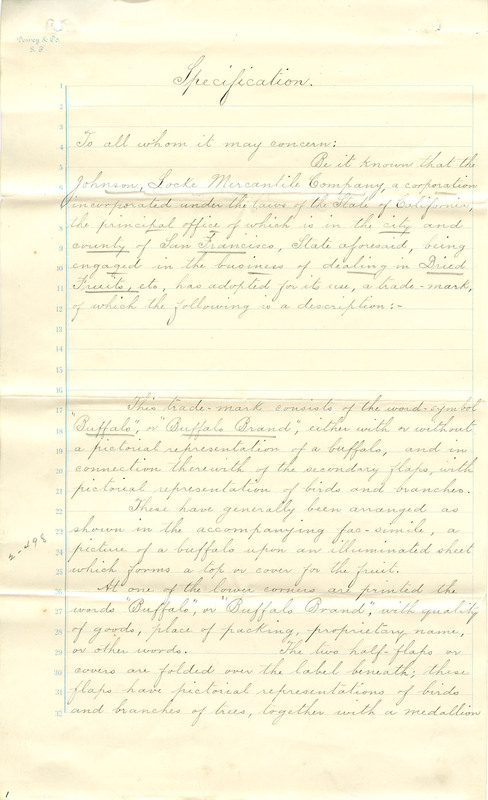 Dewey & Co.
S. F.
Specification.
1
2
3
4 To all whom it may concern:
5 Be it known that the
6 Johnson, Locke Mercantile Company, a corporation
7 incorporated under the laws of the State of California,
8 the principal office of which is in the city and
9 county of San Francisco, State aforesaid, being
10 engaged in the business of dealing in Dried
11 Fruits, etc, has adopted for it use, a trade-mark,
12 of which the following is a description:-
13
14
15
16
17 This trade-mark consists of the word-symbol
18 "Buffalo", or "Buffalo Brand", either with or without
19 a pictorial representation of a buffalo, and in
20 connection therewith of the secondary flaps, with
21 pictorial representation of birds and branches.
22 These have generally been arranged as
23 shown in the accompanying fac-simile, a
24 picture of a buffalo upon an illuminated sheet
25 which forms a top or cover for the fruit.
26 At one of the lower corners are printed the
27 words "Buffalo", or "Buffalo Brand", with quality
28 of goods, place of packing, proprietary name,
29 or other words. The two half-flaps or
30 covers are folded over the label beneath; these
31 flaps have pictorial representations of birds
32 and branches of trees, together with a medallion